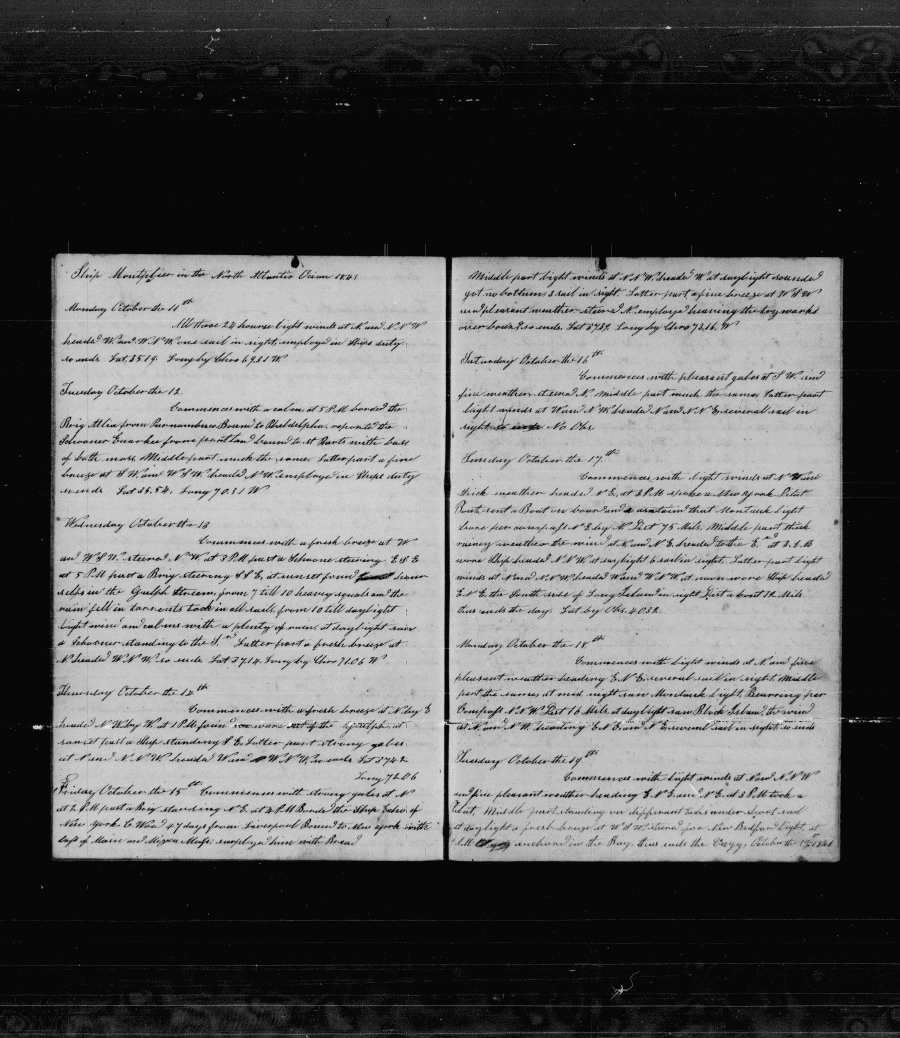 Ship Montplier in the North Atlantic Ocian 1841
Monday October the 11th
All these 24 hours light winds at N and N N W
headed W and W N W one sail in sight employed in Ships duty
so ends Lat 35.19. Long by Chro 69.31 W
Tuesday October the 12
Commences with a calm at 5 PM borded the
Brig Alia from Parnambuco Bound to Pheldelpha, reported the
Schooner bound to St Barts with loss
of both mast Middle part much the same Latter part a fine
breeze at S W and W S W headed N W employed in Ships duty
so ends Lat 35.54. Long 70.31 W
Wednesday October the 13
Commences with a fresh breeze at W
and W S W. steered N W at 3 PM past a Schooner steering E S E
at 5 PM past a Brig steering S S E, at sunset found our
selfs in the Gulph Stream, from 7 till 10 heavy squals and the
rain fell in torrents took in all sail, from 10 till daylight
light wind and calms with a plenty of rain, at daylight saw
a Schooner standing to the S.rd Latter part a fresh breeze at
N headed W N W. so ends Lat 37.14. Long by Chro 71.06 W
Thursday October the 14th
Commences with a fresh breeze at N by E
headed N W by W. at 1 PM found we ware out of the Gulph at
sunset past a Ship standing S E. Latter part strong gales
at N and N. N W headed W and W N W. so ends Lat 37.42
Long 72.06
Friday October the 15th Commences with strong gales at N
at 2 PM past a Brig standing N E. at 3 PM Borded the Ship of
New York 47 days from Liverpool Bound to New York with
loss of Main and Mizen Mast. employed him with Bread
Middle part light winds at N N W. headed W at daylight sounded
got no bottom 3 sail in sight. Latter part a fine breeze at W S W
and pleasant weather steered N. employed heaving the try works
over board, so ends. Lat 37.39. Long by Chro 73.16. W
Saturday October the 16th
Commences with pleasant gales at S W. and
fine weather, steered N. Middle part much the same, Latter part
light winds at W and N W. headed N and N N E, several sail in
sight No Obs
Sunday October the 17th
Commences with light winds at N W and
thick weather headed N E. at 3 PM spoke a New York Pilot
Bout sent a Bout on bourd and that Montuck light
bore per compass N E by N Dist 75 Mile. Middle part thick
rainey weather the wind at N and N E. headed to the E.rd at 3
wore Ship headed N N W. at daylight 6 sail in sight. Latter part light
winds at N and N. N W. headed W and W N W. at noon wore Ship headed
E N E the South side of Long Island in sight Dist a bout 12 Mile
thus ends the day. Lat by Obs. 40.32
Monday October the 18th
Commences with light winds at N and fine
pleasant weather heading E N E. several sail in sight. Middle
part the same, at mid night saw Montuck light Bearing per
Compass N N W. Dist 16 Mile at daylight saw Block Island, the wind
at N. and N W. heading E N E. and N E. several sail in sight, so ends
Tuesday October the 19th
Commences with light winds at N and N N W
and fine pleasant weather heading E. N E and N E. at 3 PM took a
Pilat. Middle part standing on differant tacks under short sail
at daylight a fresh breeze at W S W. steered for New Bedford light, at
anchored in the Bay, thus ends the Voyge October the 19th 1841